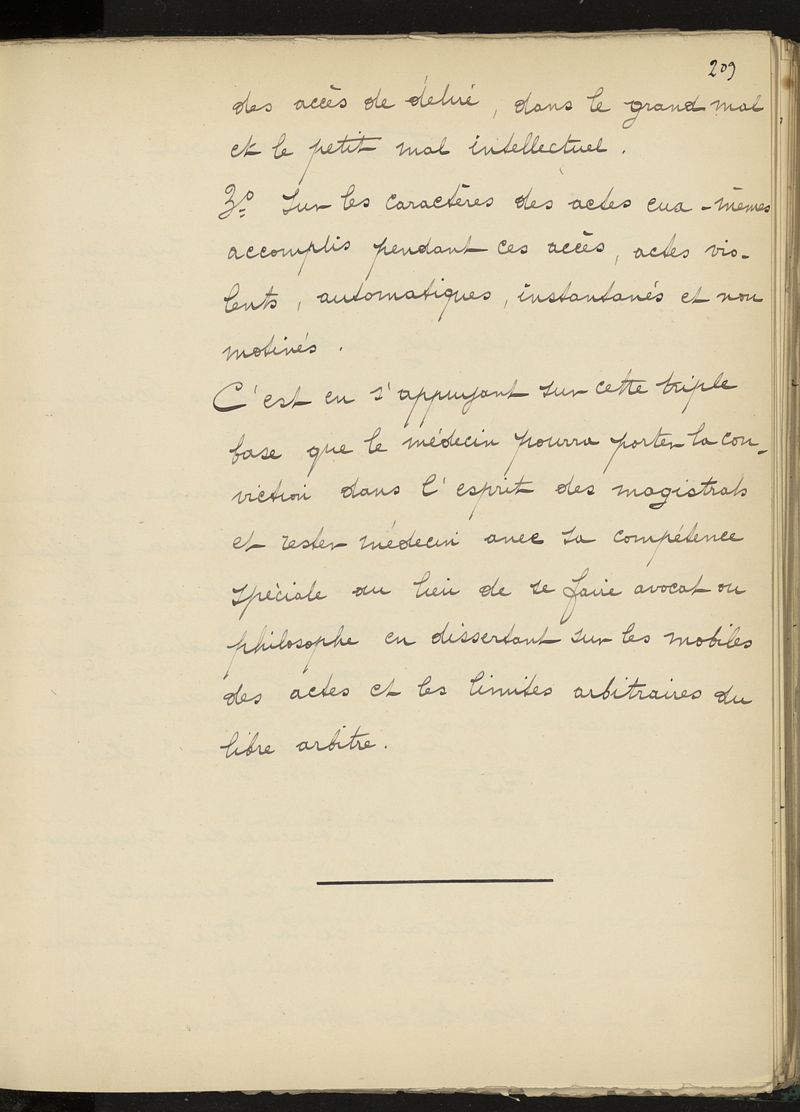 209
des accès de délire, dans le grand mal
et le petit mal intellectuel.
3º Sur les caractères des actes eux-mêmes
accomplis pendant ces accès, actes vio-
lents, automatiques, instantanés et non
motivés.
C'est en s'appuyant sur cette triple
base que le médecin pourra porter la con-
viction dans l'esprit des magistrats
et rester médecin avec sa compétence
spéciale au lieu de se faire avocat ou
philosophe en dissertant sur les mobiles
des actes et les limites arbitraires du
libre arbitre.